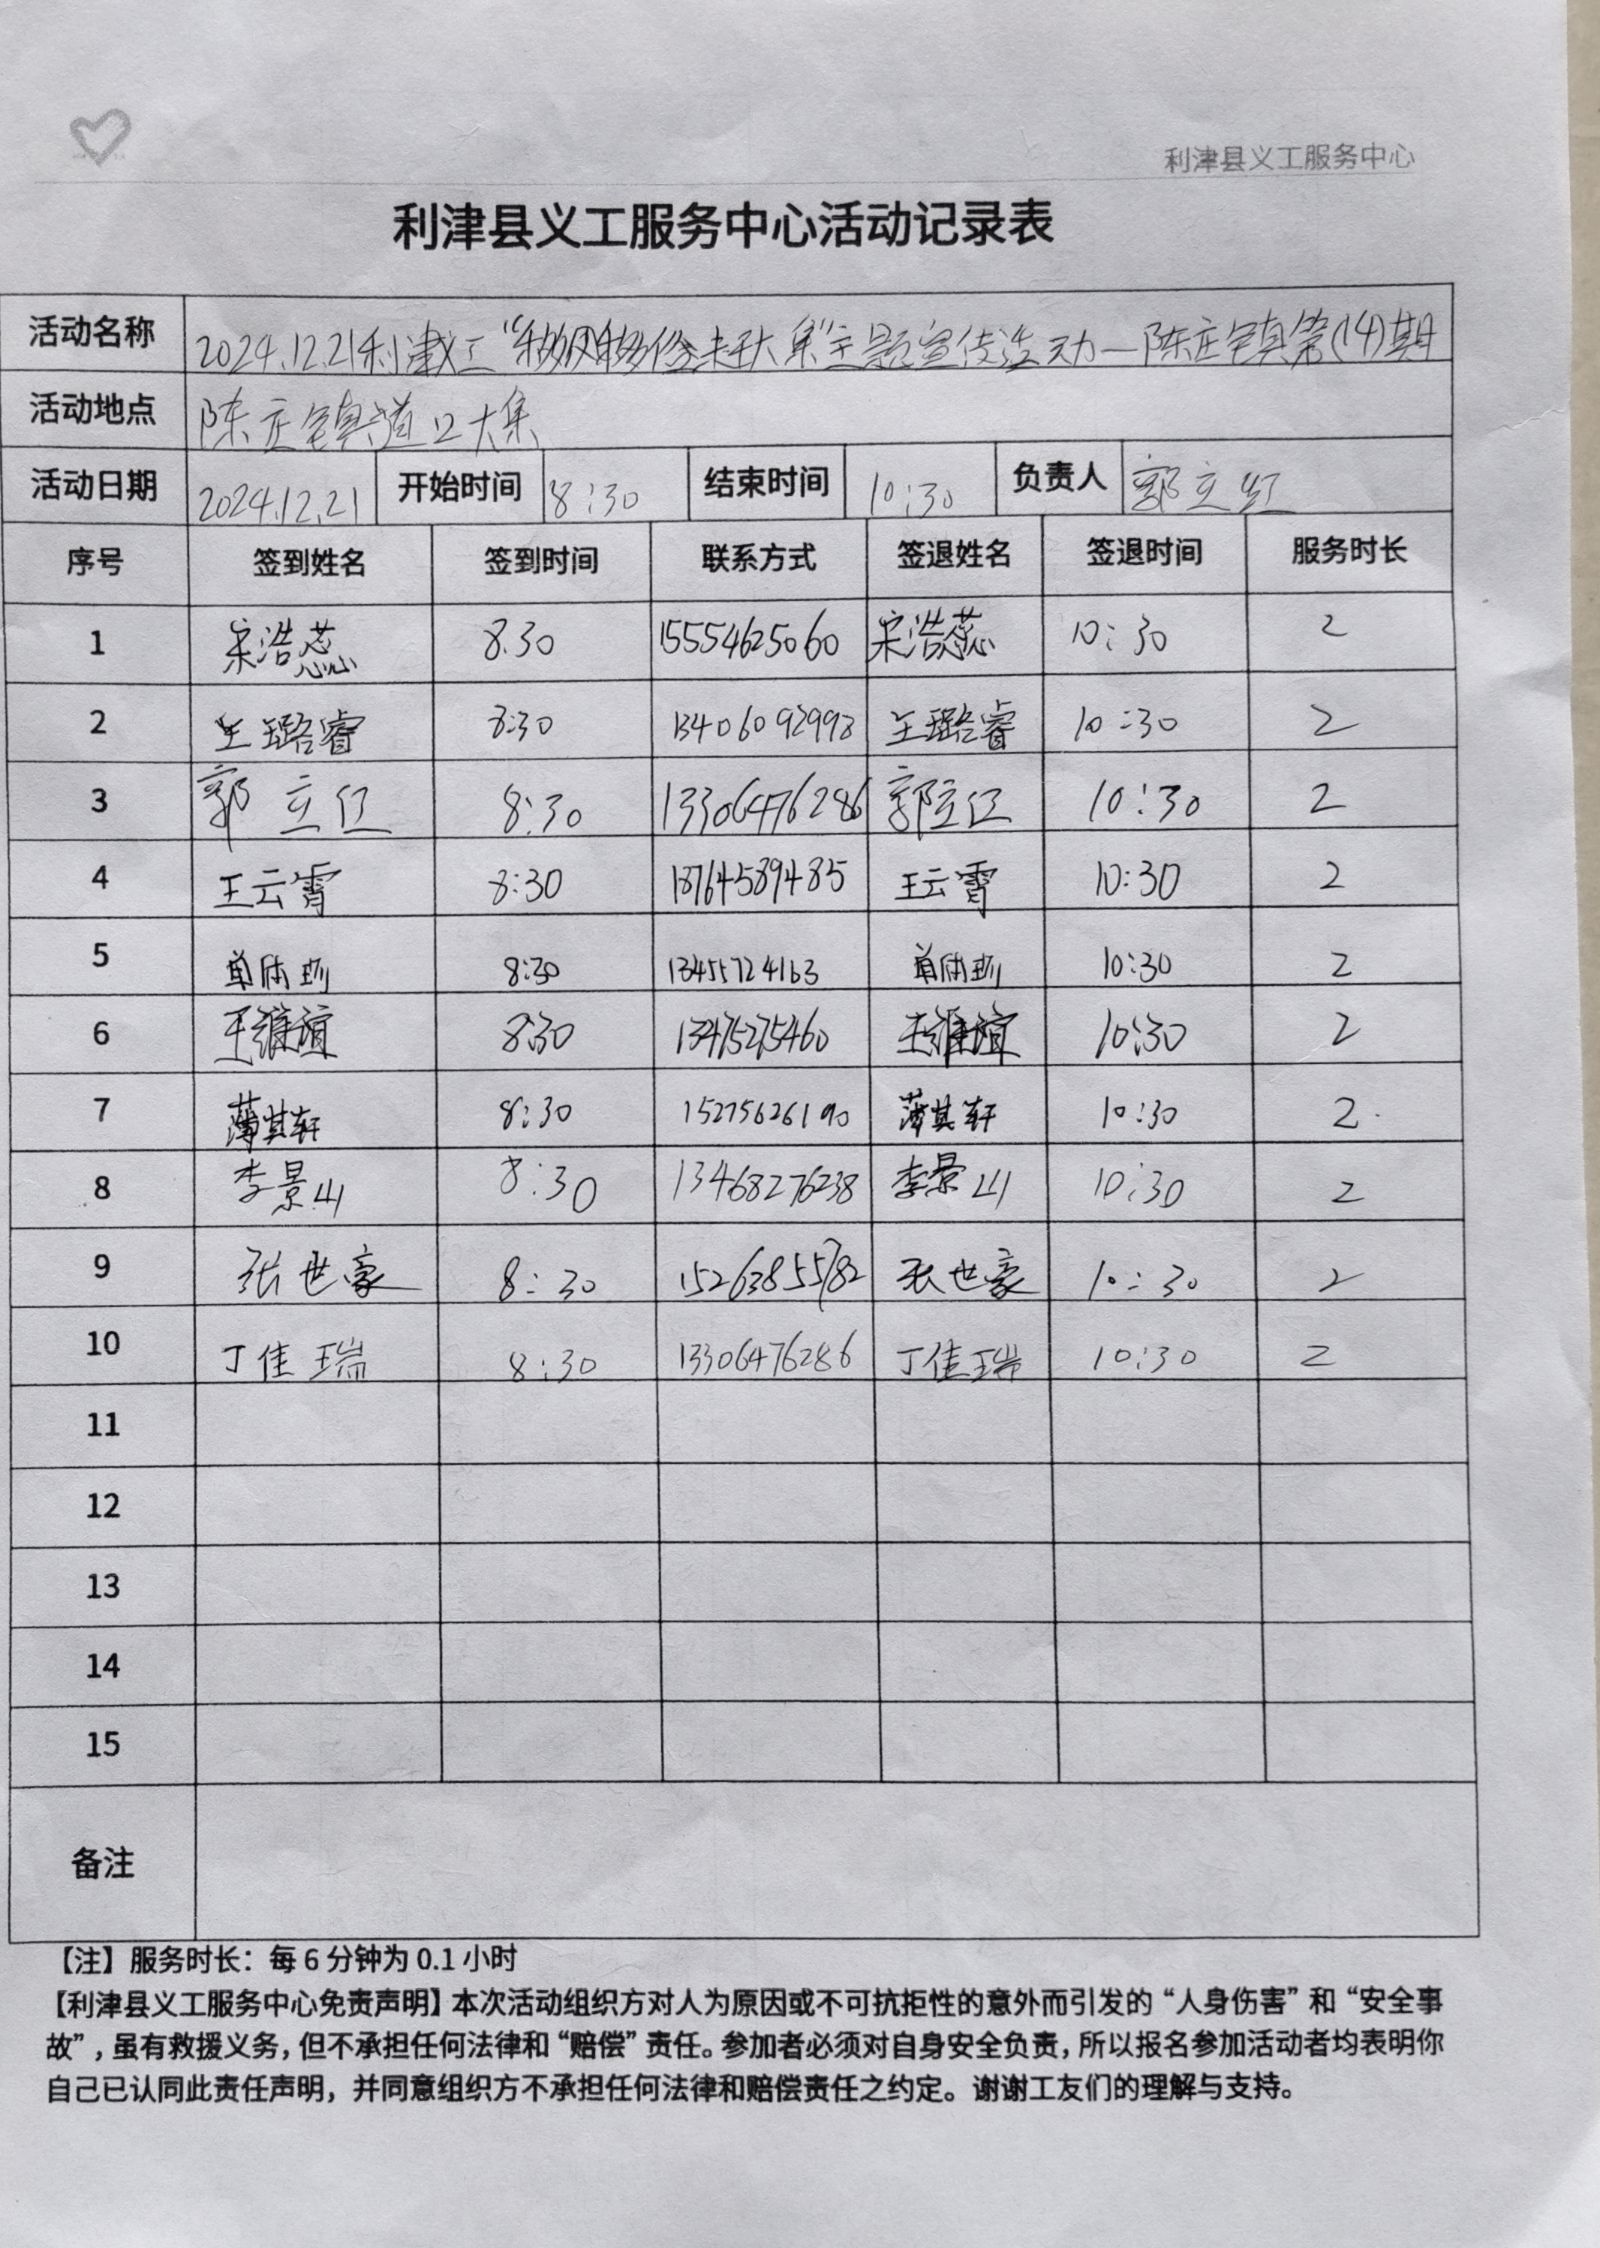 利津县义工服务中心
利津县义工服务中心活动记录表
活动名称 2024.12.21利津义工“移风移俗赶大集”主题宣传活动—陈庄镇第(14)期
活动地点 陈庄镇道口大集
活动日期 2024.12.21 开始时间 8:30 结束时间 10:30 负责人 郭立红
序号 签到姓名 签到时间 联系方式 签退姓名 签退时间 服务时长
1 宋浩蕊 8.30 15554625060 宋浩蕊 10:30 2
2 王璐睿 8:30 13406092992 王璐睿 10:30 2
3 郭立红 8:30 13306476286 郭立红 10:30 2
4 王云霄 8:30 18764589485 王云霄 10:30 2
5 8:30 13455724163 10:30 2
6 王维谊 8:30 13475275460 王维谊 10:30 2
7 薄其轩 8:30 15275626190 薄其轩 10:30 2
8 李景山 8:30 13468276238 李景山 10:30 2
9 张世豪 8:30 15263855782 张世豪 10:30 2
10 丁佳瑞 8:30 13306476286 丁佳瑞 10:30 2
11
12
13
14
15
备注
【注】服务时长：每6分钟为0.1小时
【利津县义工服务中心免责声明】本次活动组织方对人为原因或不可抗拒性的意外而引发的“人身伤害”和“安全事
故”，虽有救援义务，但不承担任何法律和“赔偿”责任。参加者必须对自身安全负责，所以报名参加活动者均表明你
自己已认同此责任声明，并同意组织方不承担任何法律和赔偿责任之约定。谢谢工友们的理解与支持。